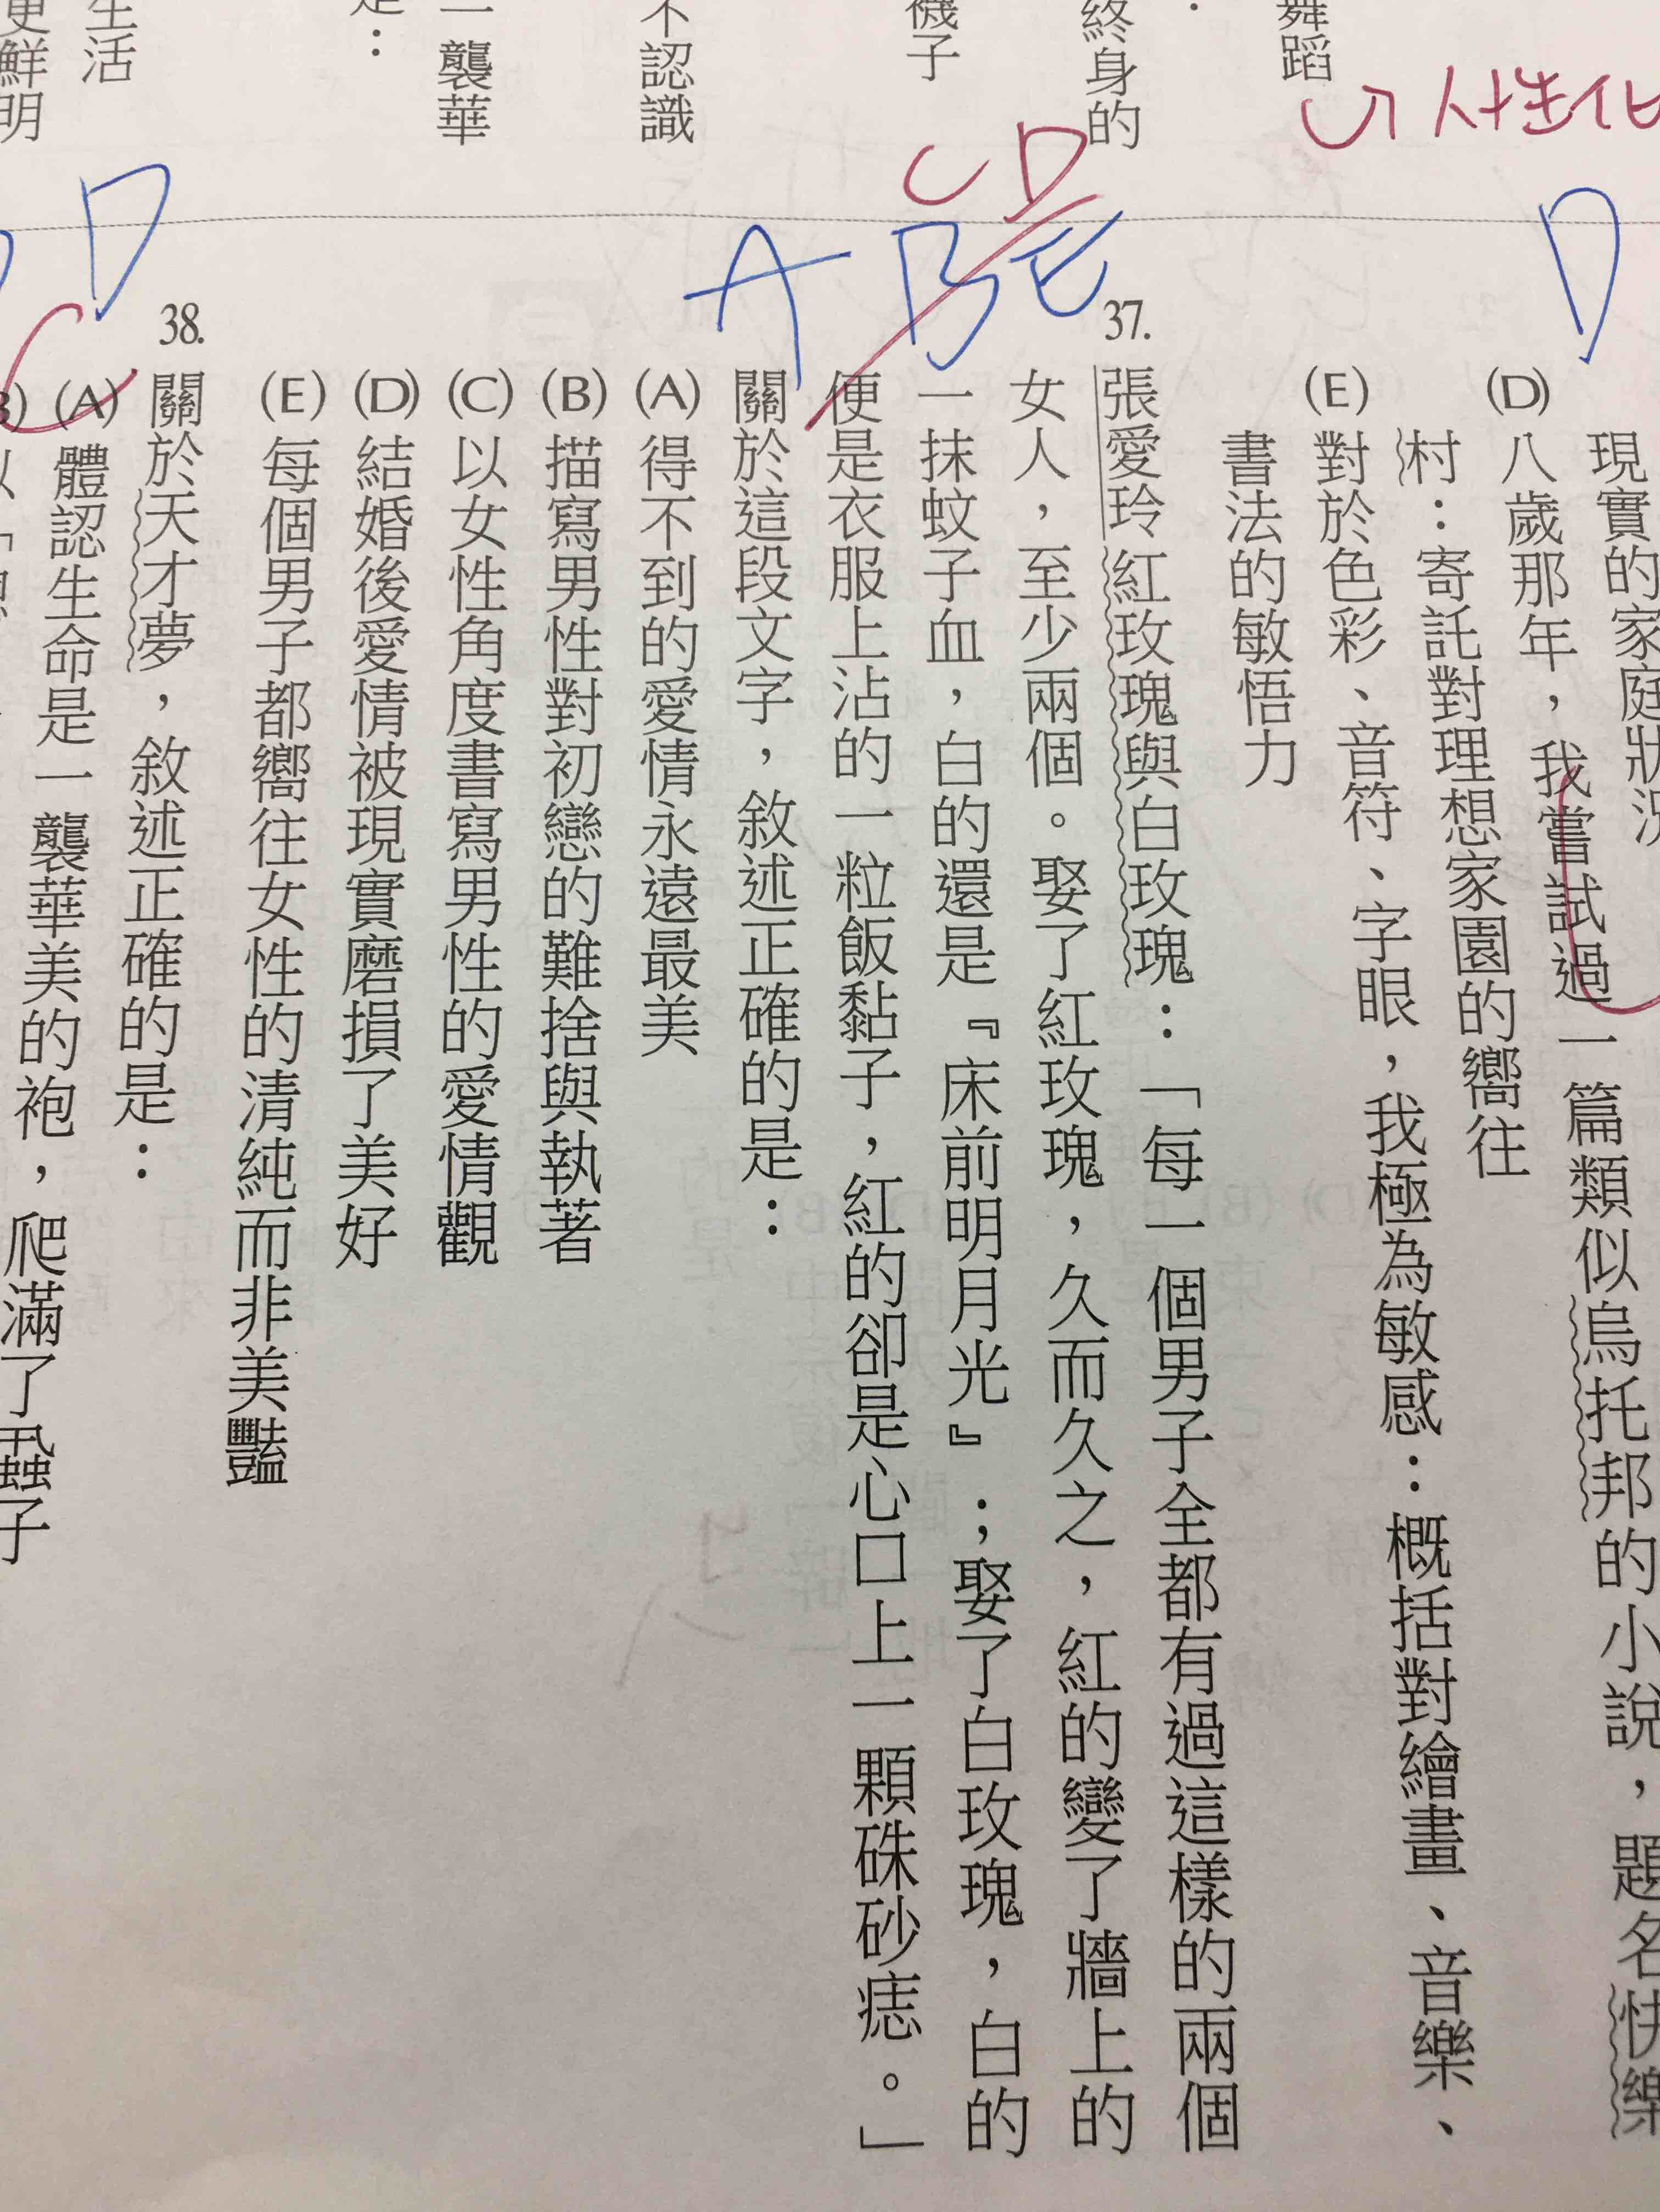 舞蹈
終身的
襪子
不認識
一襲華
是：
生活
更鮮明
人性化
D
現實的家庭狀況
(D)八歲那年，我嘗試過一篇類似烏托邦的小說，題名快樂
村：寄託對理想家園的嚮往
(E)對於色彩、音符、字眼，我極為敏感：概括對繪畫、音樂、
書法的敏悟力
CD
ABE
37.張愛玲紅玫瑰與白玫瑰：「每一個男子全都有過這樣的兩個
女人，至少兩個。娶了紅玫瑰，久而久之，紅的變了牆上的
一抹蚊子血，白的還是『床前明月光』；娶了白玫瑰，白的
便是衣服上沾的一粒飯黏子，紅的卻是心口上一顆硃砂痣。」
關於這段文字，敘述正確的是：
(A)得不到的愛情永遠最美
(B)描寫男性對初戀的難捨與執著
(C)以女性角度書寫男性的愛情觀
(D)結婚後愛情被現實磨損了美好
(E)每個男子都嚮往女性的清純而非美豔
D
38.關於天才夢，敘述正確的是：
(A)體認生命是一襲華美的袍，爬滿了蝨子